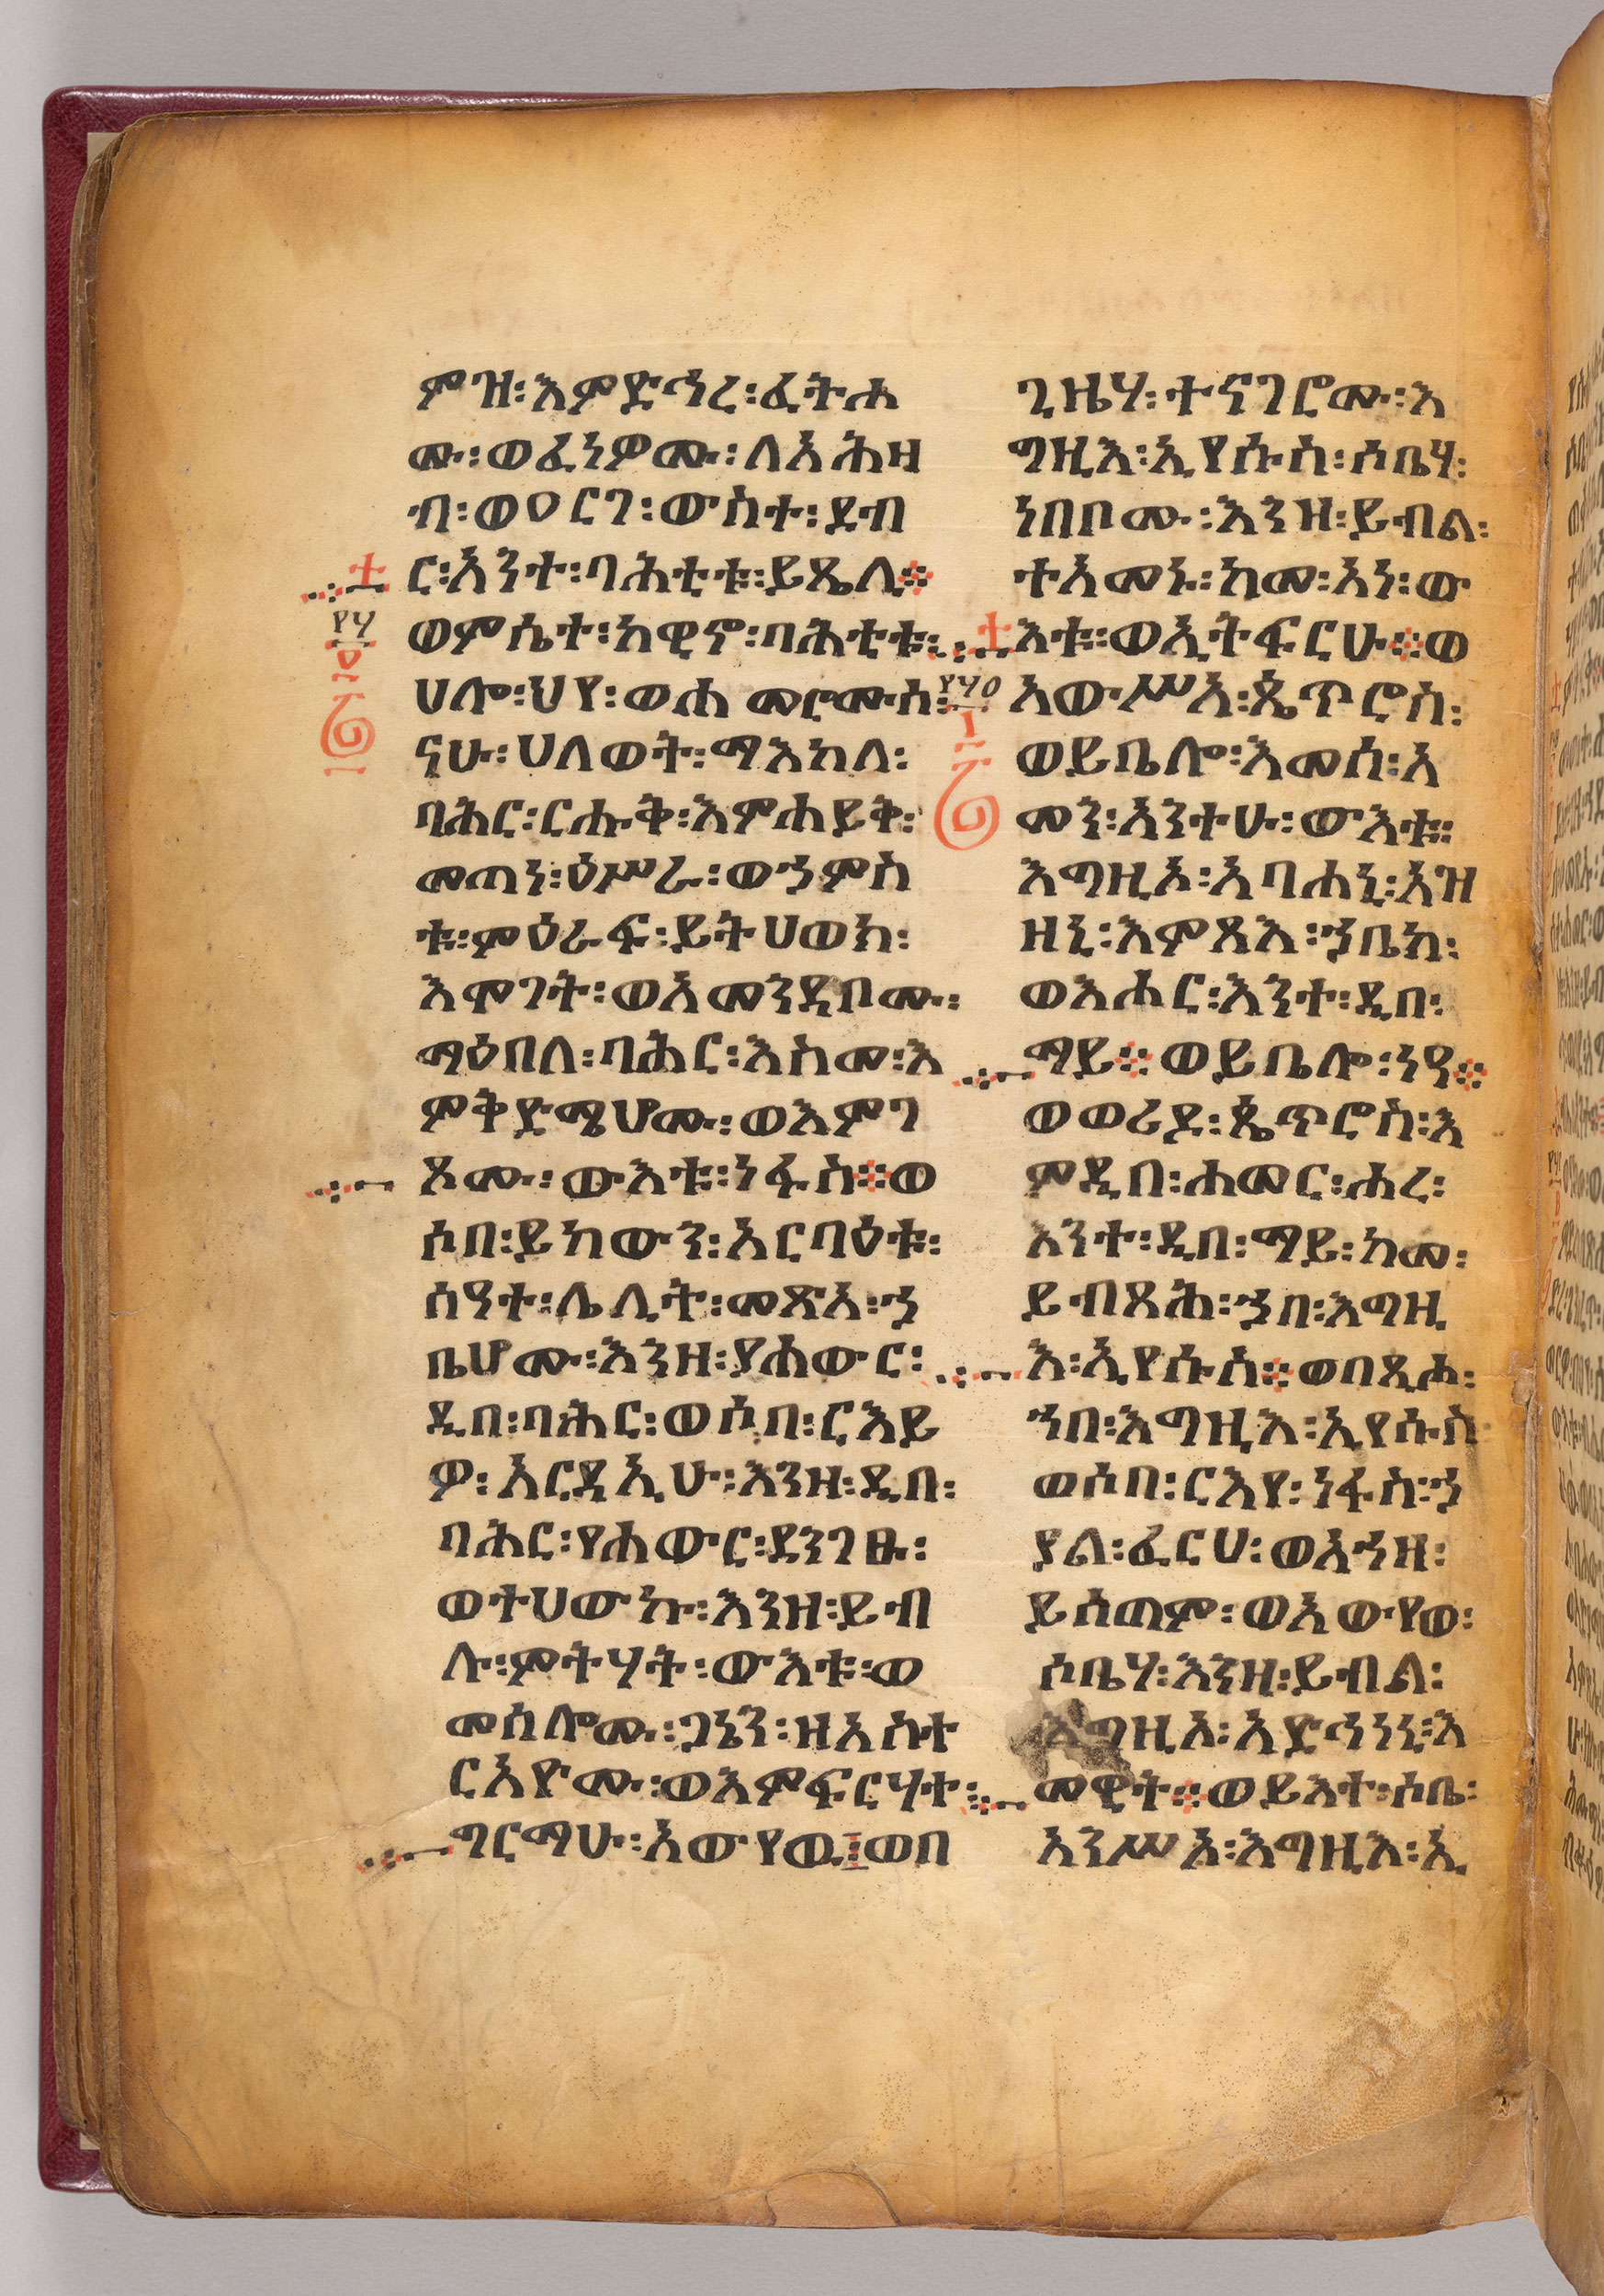 ምዝ፡እምድኅረ፡ፈትሐ
ሙ፡ወፈነዎሙ፡ለአሕዛ
ብ፡ወዐርገ፡ውስተ፡ደብ
ር፡እንተ፡ባሕቲቱ፡ይጼሊ፨
ወምሴተ፡ከዊኖ፡ባሕቲቱ፡
ሀሎ፡ህየ፡ወሐመሮሙሰ፡
ናሁ፡ሀለወት፡ማእከለ፡
ባሕር፡ርሑቅ፡እምሐይቅ፡
መጠነ፡ዕሥራ፡ወኀምስ
ቱ፡ምዕራፍ፡ይትሀወክ፡
እሞገት፡ወአመንደቦሙ፡
ማዕበለ፡ባሕር፡እስመ፡እ
ምቅድሜሆሙ፡ወእምገ
ጾሙ፡ውእቱ፡ነፋስ፨ወ
ሶበ፡ይከውን፡አርባዕቱ፡
ሰዓተ፡ሌሊት፡መጽአ፡ኀ
ቤሆሙ፡እንዘ፡ያሐውር፡
ዲበ፡ባሕር፡ወሶበ፡ርእይ
ዎ፡አርዳኢሁ፡እንዘ፡ዲበ፡
ባሕር፡የሐውር፡ደንገፁ፡
ወተሀውኩ፡እንዘ፡ይብ
ሉ፡ምትሃት፡ውእቱ፡ወ
መሰሎሙ፡ጋኔን፡ዘአስተ
ርአዮሙ፡ወእምፍርሃተ፡
ግርማሁ፡አውየዉ፤ወበ
ጊዜሃ፡ተናገሮሙ፡እ
ግዚእ፡ኢየሱስ፡ሶቤሃ፡
ነበቦሙ፡እንዘ፡ይብል፡
ተአመኑ፡ከመ፡አነ፡ው
እቱ፡ወኢትፍርሁ፨ወ
አውሥአ፡ጴጥሮስ፡
ወይቤሎ፡እመሰ፡አ
መን፡አንተሁ፡ውእቱ፡
እግዚኦ፡አባሐኒ፡አዝ
ዘኒ፡እምጻእ፡ኀቤከ፡
ወእሑር፡እንተ፡ዲበ፡
ማይ፨ወይቤሎ፡ነዓ፨
ወወሪዶ፡ጴጥሮስ፡እ
ምዲበ፡ሐመር፡ሖረ፡
እንተ፡ዲበ፡ማይ፡ከመ፡
ይብጻሕ፡ኀበ፡እግዚ
እ፡ኢየሱስ፨ወበጺሖ፡
ኀበ፡እግዚእ፡ኢየሱስ
ወሶበ፡ርእየ፡ነፋስ፡ኀ
ያል፡ፈርሀ፡ወአኀዘ፡
ይሰጠም፡ወአውየወ፡
ሶቤሃ፡እንዘ፡ይብል፡
እግዚኦ፡አድኅነኒ፡እ
መዊት፨ወይእተ፡ሶቤ፡
አንሥአ፡እግዚእ፡ኢ